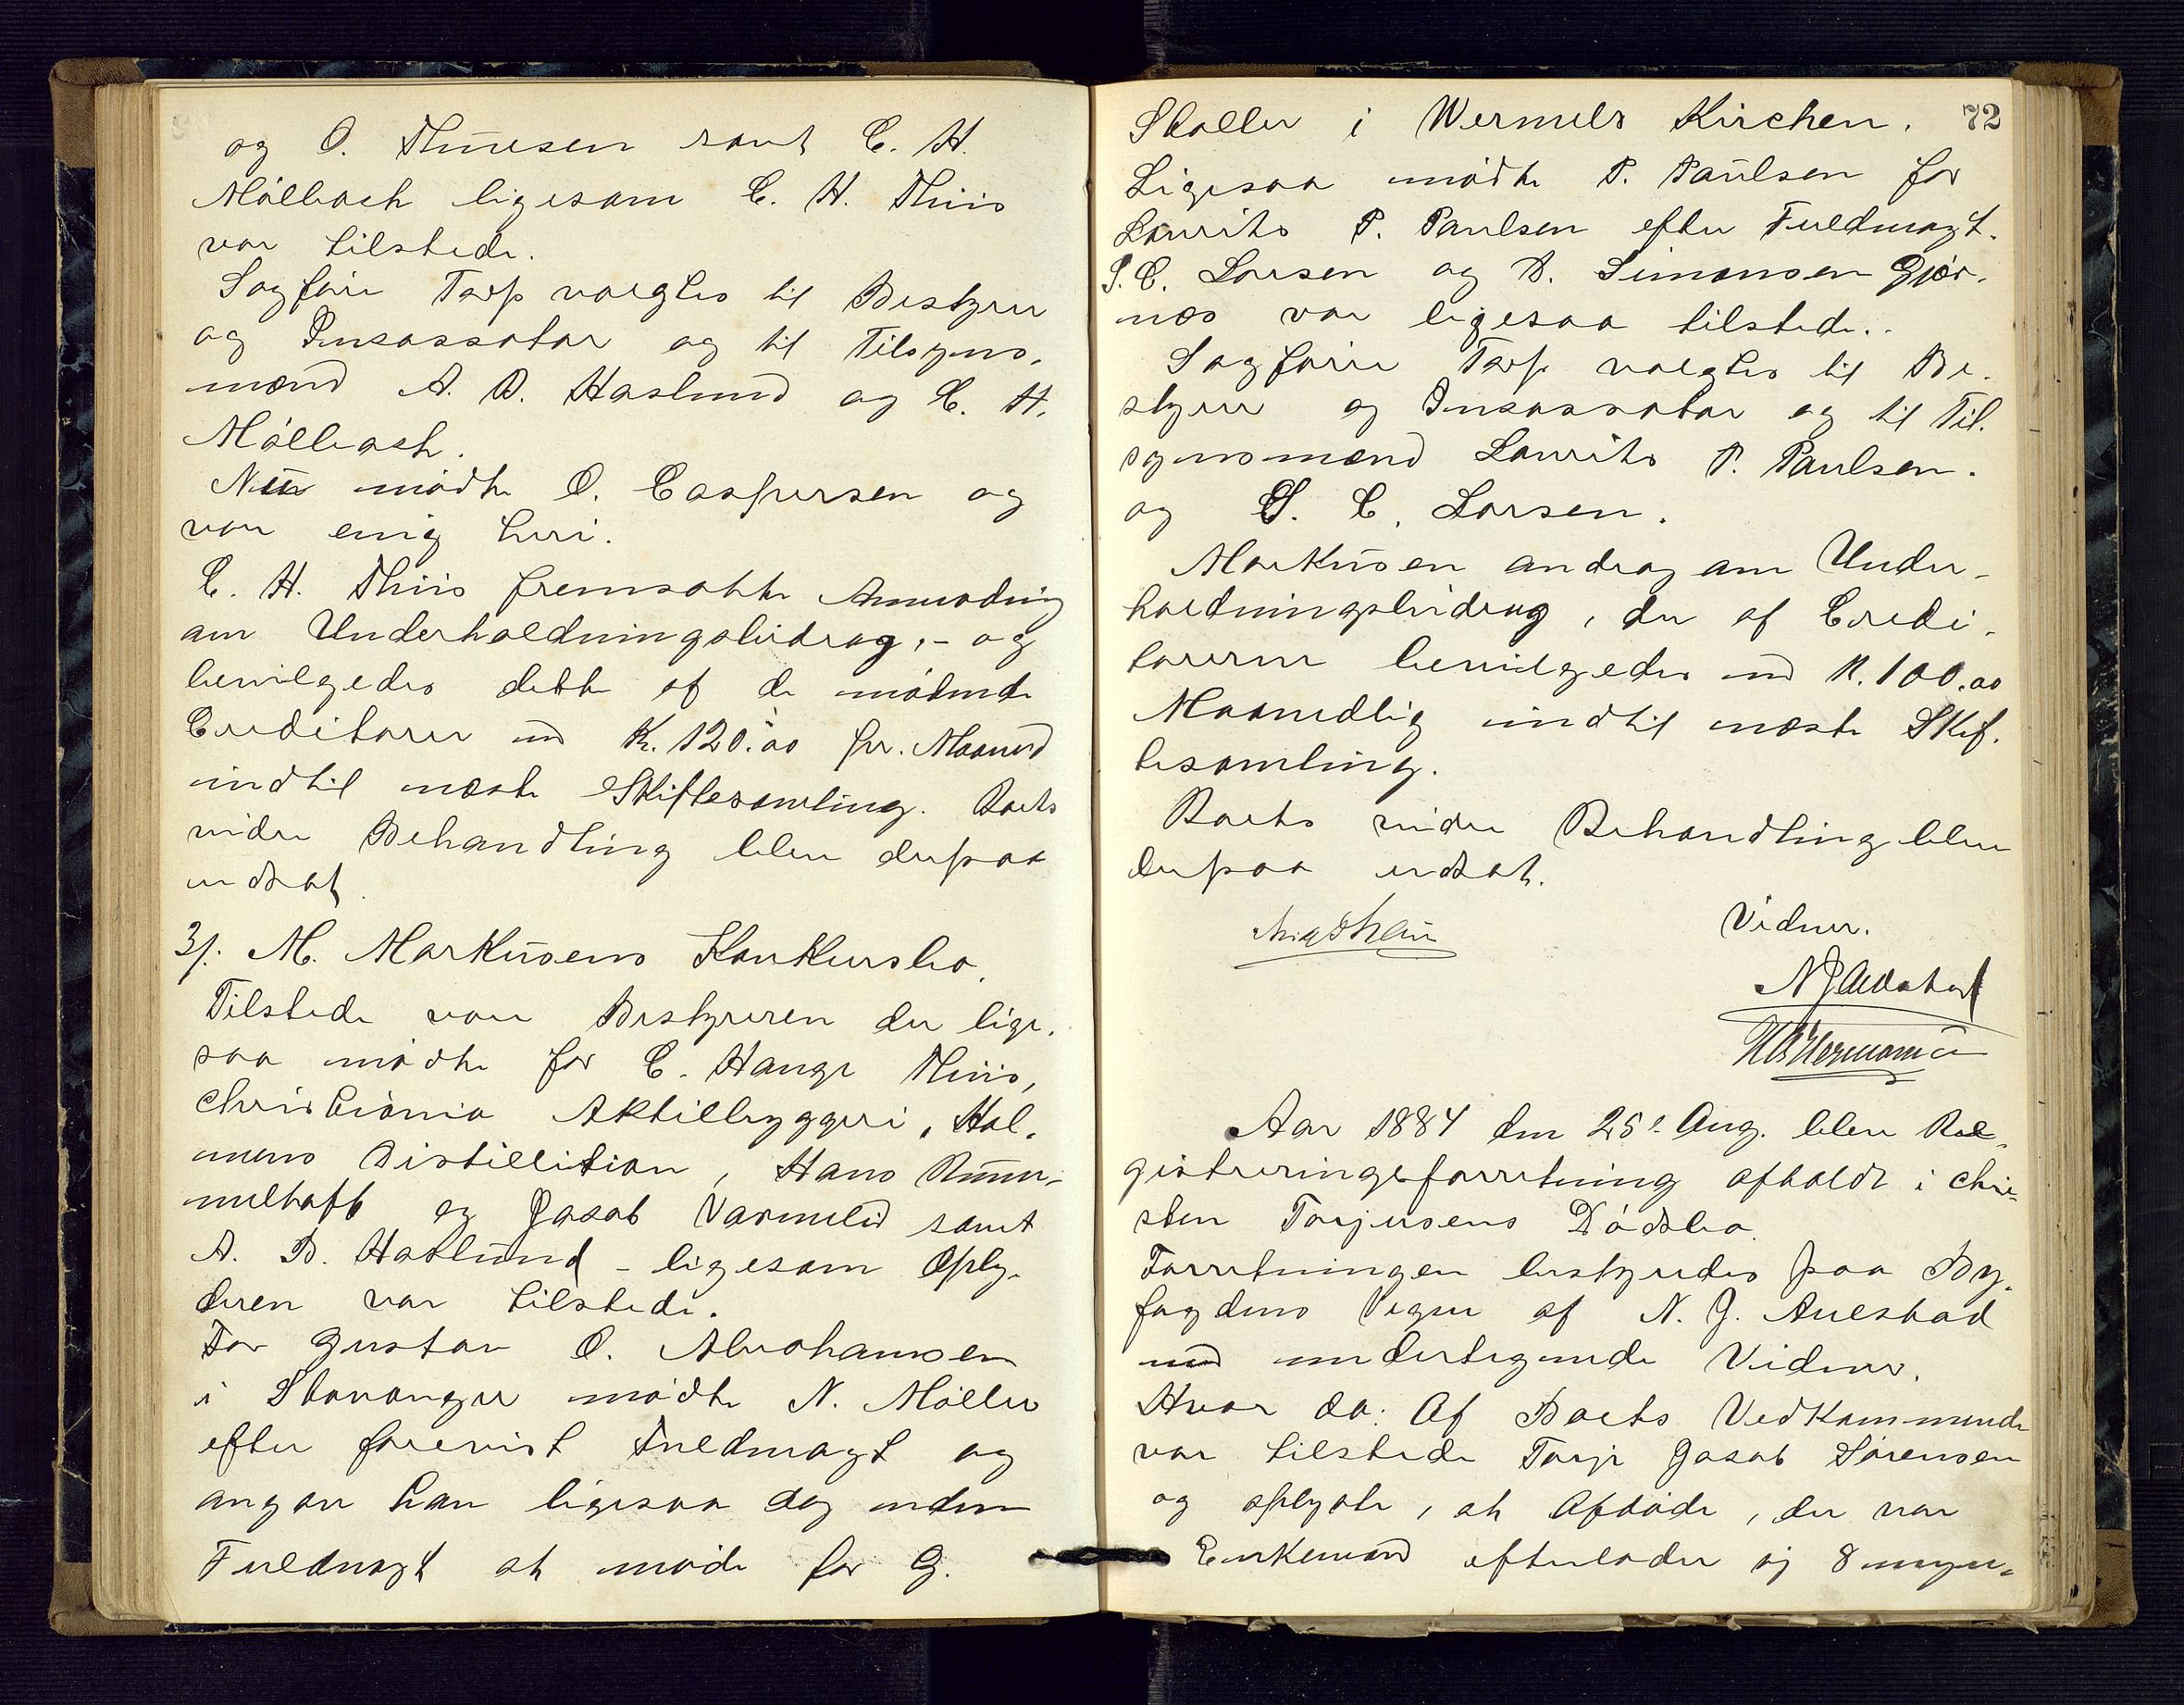 og O. Thuesen samt C. H.
Møllbach ligesom C. H. Thiis
var tilstede.
Sagfører Tarp valgtes til Bestyrer
og Incassator og til Tilsyns-
mænd A. B. Haslund og C. H.
Møllbach.
Nu mødte O. Caspersen og
var enig heri.
C. H. Thiis fremsatte Anmodning
om Underholdningsbidrag, - og
bevilgedes dette af de mødende
Creditorer med Kr. 120.00 pr. Maaned
indtil næste Skiftesamling. Boets
videre Behandling blev derpaa
udsat.
3/. M. Markusens Konkursbo.
Tilstede var Bestyreren der lige-
saa mødte for C. Hauge Thiis,
Christiania Aktiebryggeri, Hol-
mens Distillation, Hans
og Jacob Varmelid samt
A. B. Haslund - ligesom Opby-
deren var tilstede.
For Gustav O. Abrahamsen
i Stavanger mødte N. Møller
efter forevist Fuldmagt og
angav han ligesaa dog uden
Fuldmagt at møde for G.
72
i Wermels Kirchen.
Ligesaa mødte P. Paulsen for
Laurits P. Paulsen efter Fuldmagt.
S. C. Larsen og B. Simonsen Gjær-
næs var ligesaa tilstede.
Sagfører Tarp valgtes til Be-
styrer og Incassator og til Til-
synsmænd Laurits P. Paulsen
og S. C. Larsen.
Markusen androg om Under-
holdningsbidrag, der af Credi-
torerne bevilgedes med K. 100.00
Maanedlig indtil næste Skif-
tesamling.
Boets videre Behandling blev
derpaa udsat.
Vidner.
N J Auestad
Aar 1884 den 25de Aug. blev Re-
gistreringsforretning afholdt i Chri-
sten Torjusens Dødsbo.
Forretningen bestyredes paa By-
fogdens Vegne af N. J. Auestad
med undertegnede Vidner.
Hvor da: Af Boets Vedkommende
var tilstede Torje Jacob Sørensen
og oplyste, at Afdøde, der var
Enkemand efterlader sig 8 myn-